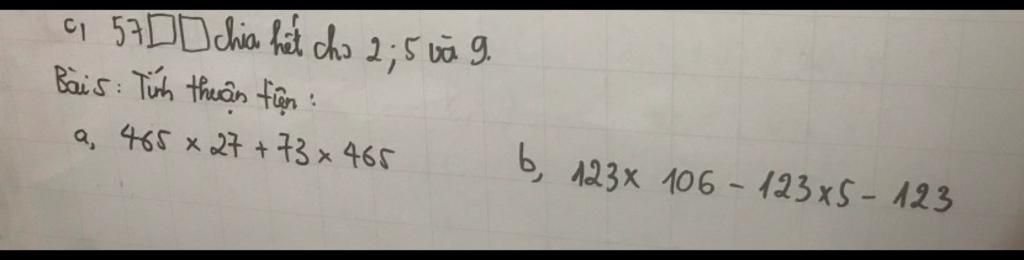 c, 57□□ chia hết cho 2; 5 và 9.
Bài 5: Tính thuận tiện:
a, 465 × 27 + 73 × 465
b, 123 × 106 - 123 × 5 - 123